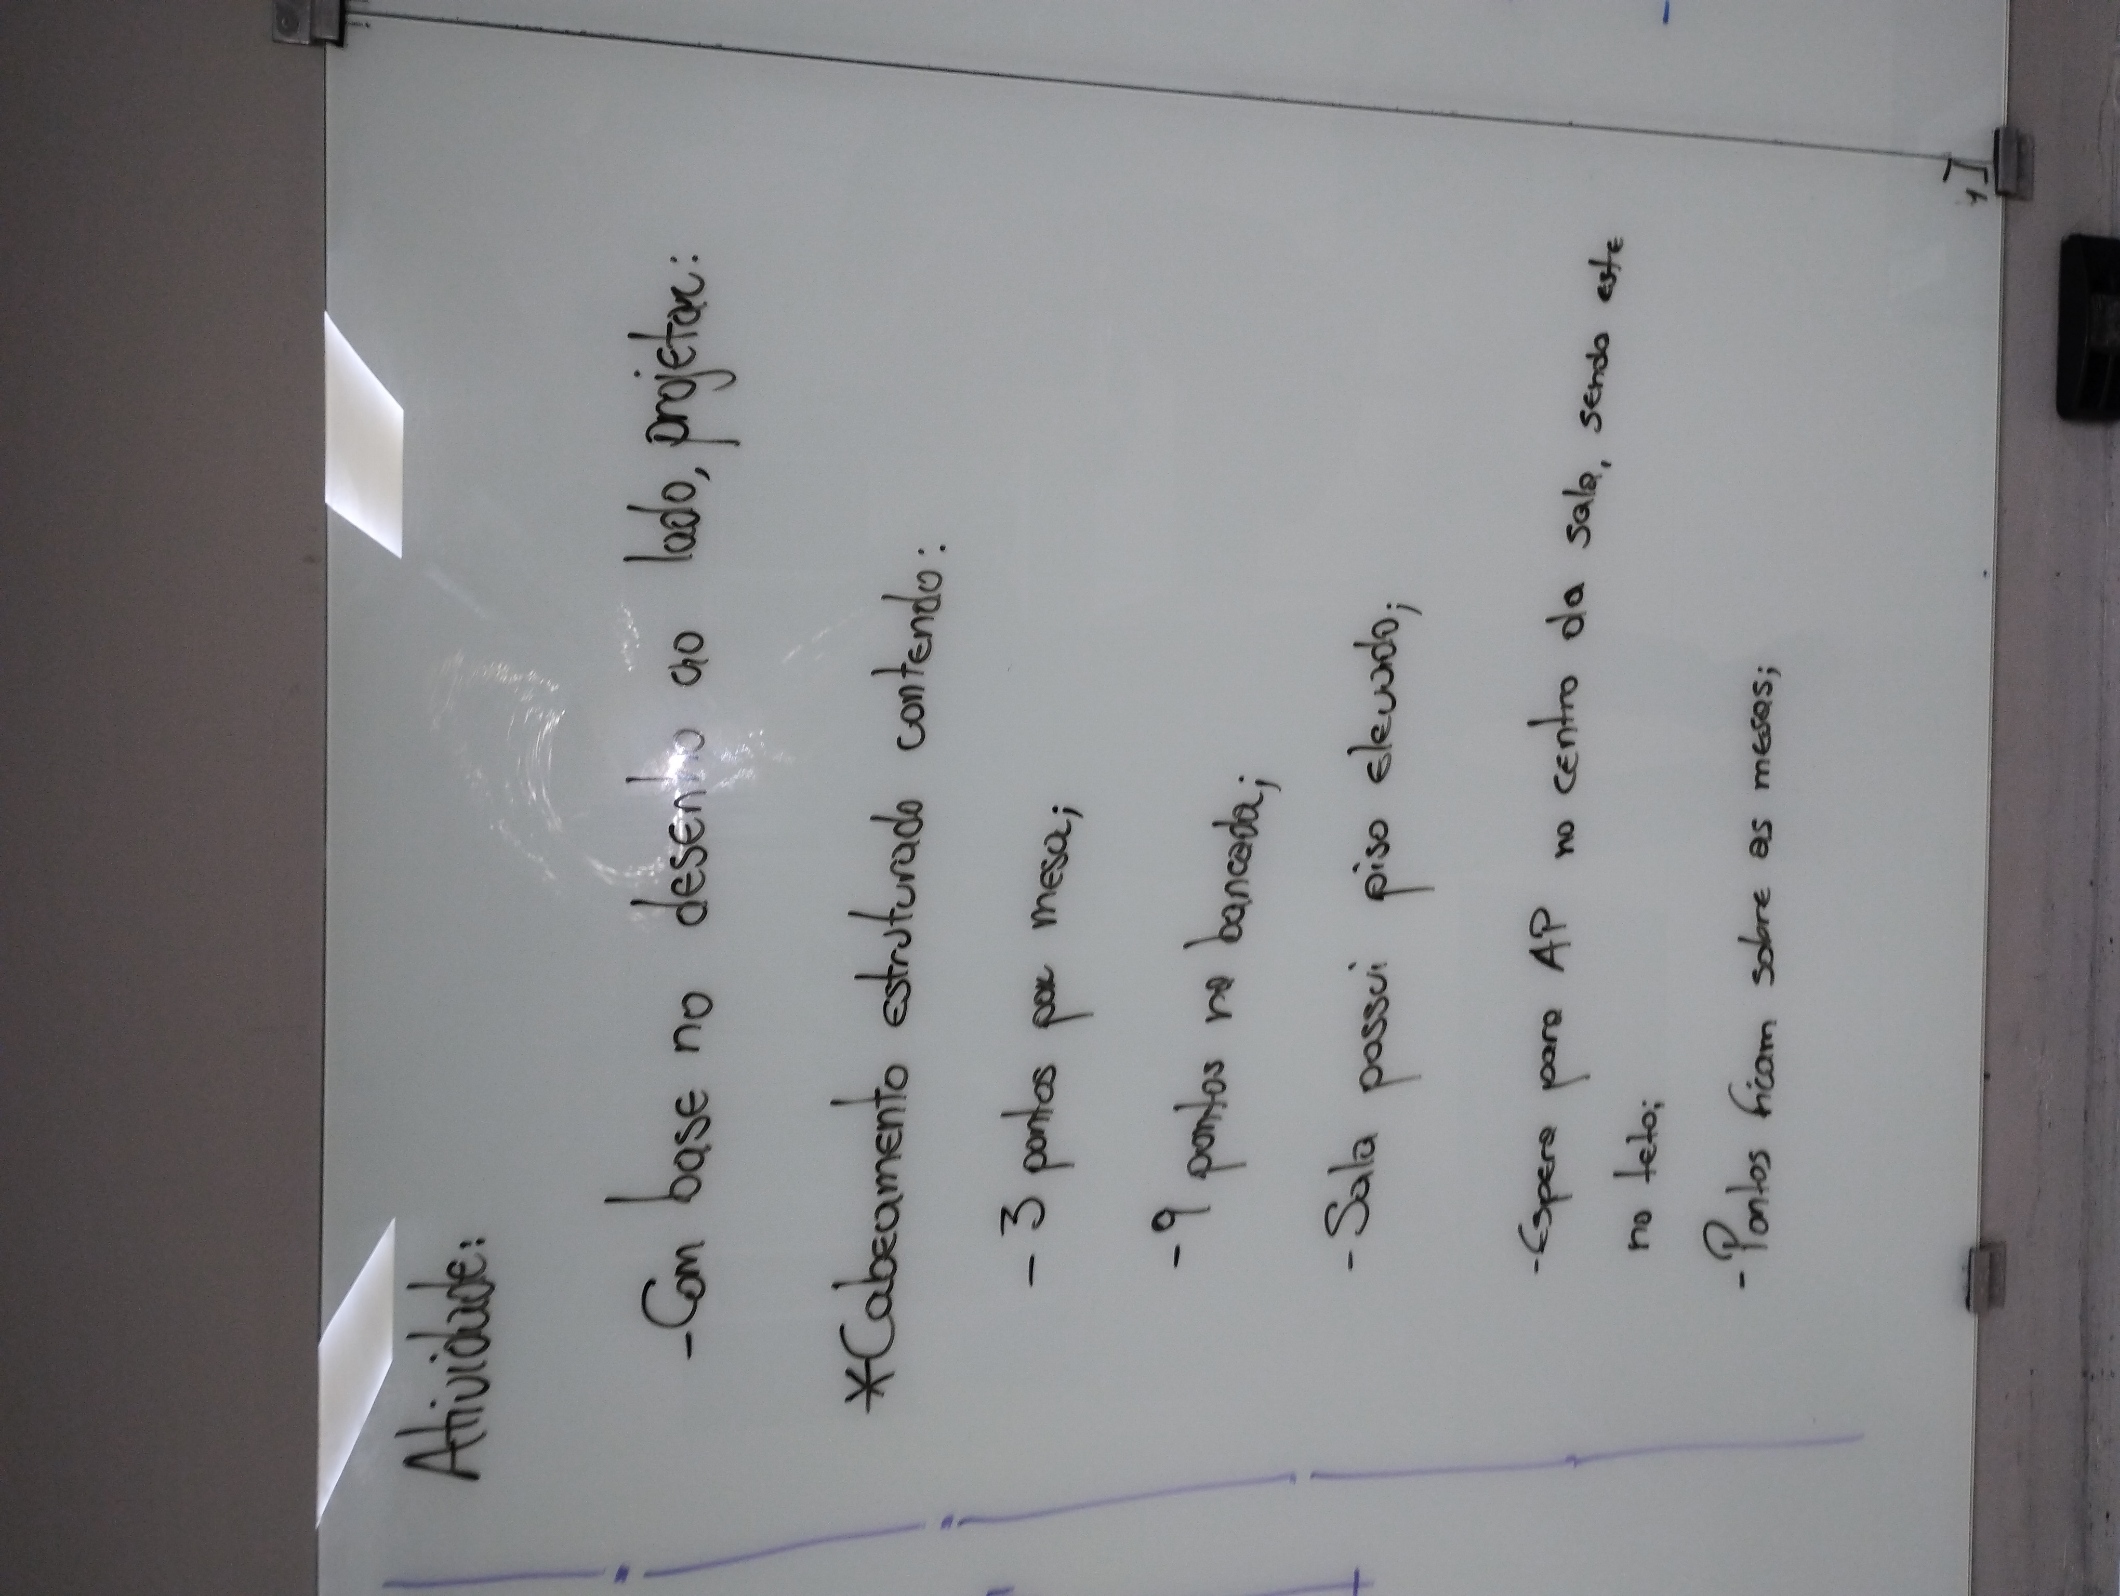 Atividade:
-Com base no desenho ao lado, projetar:
*Cabeamento estruturado contendo:
- 3 pontos por mesa;
- 9 pontos na bancada;
- Sala possui piso elevado;
-Espera para AP no centro da sala, sendo este
no teto;
- Pontos ficam sobre as mesas;